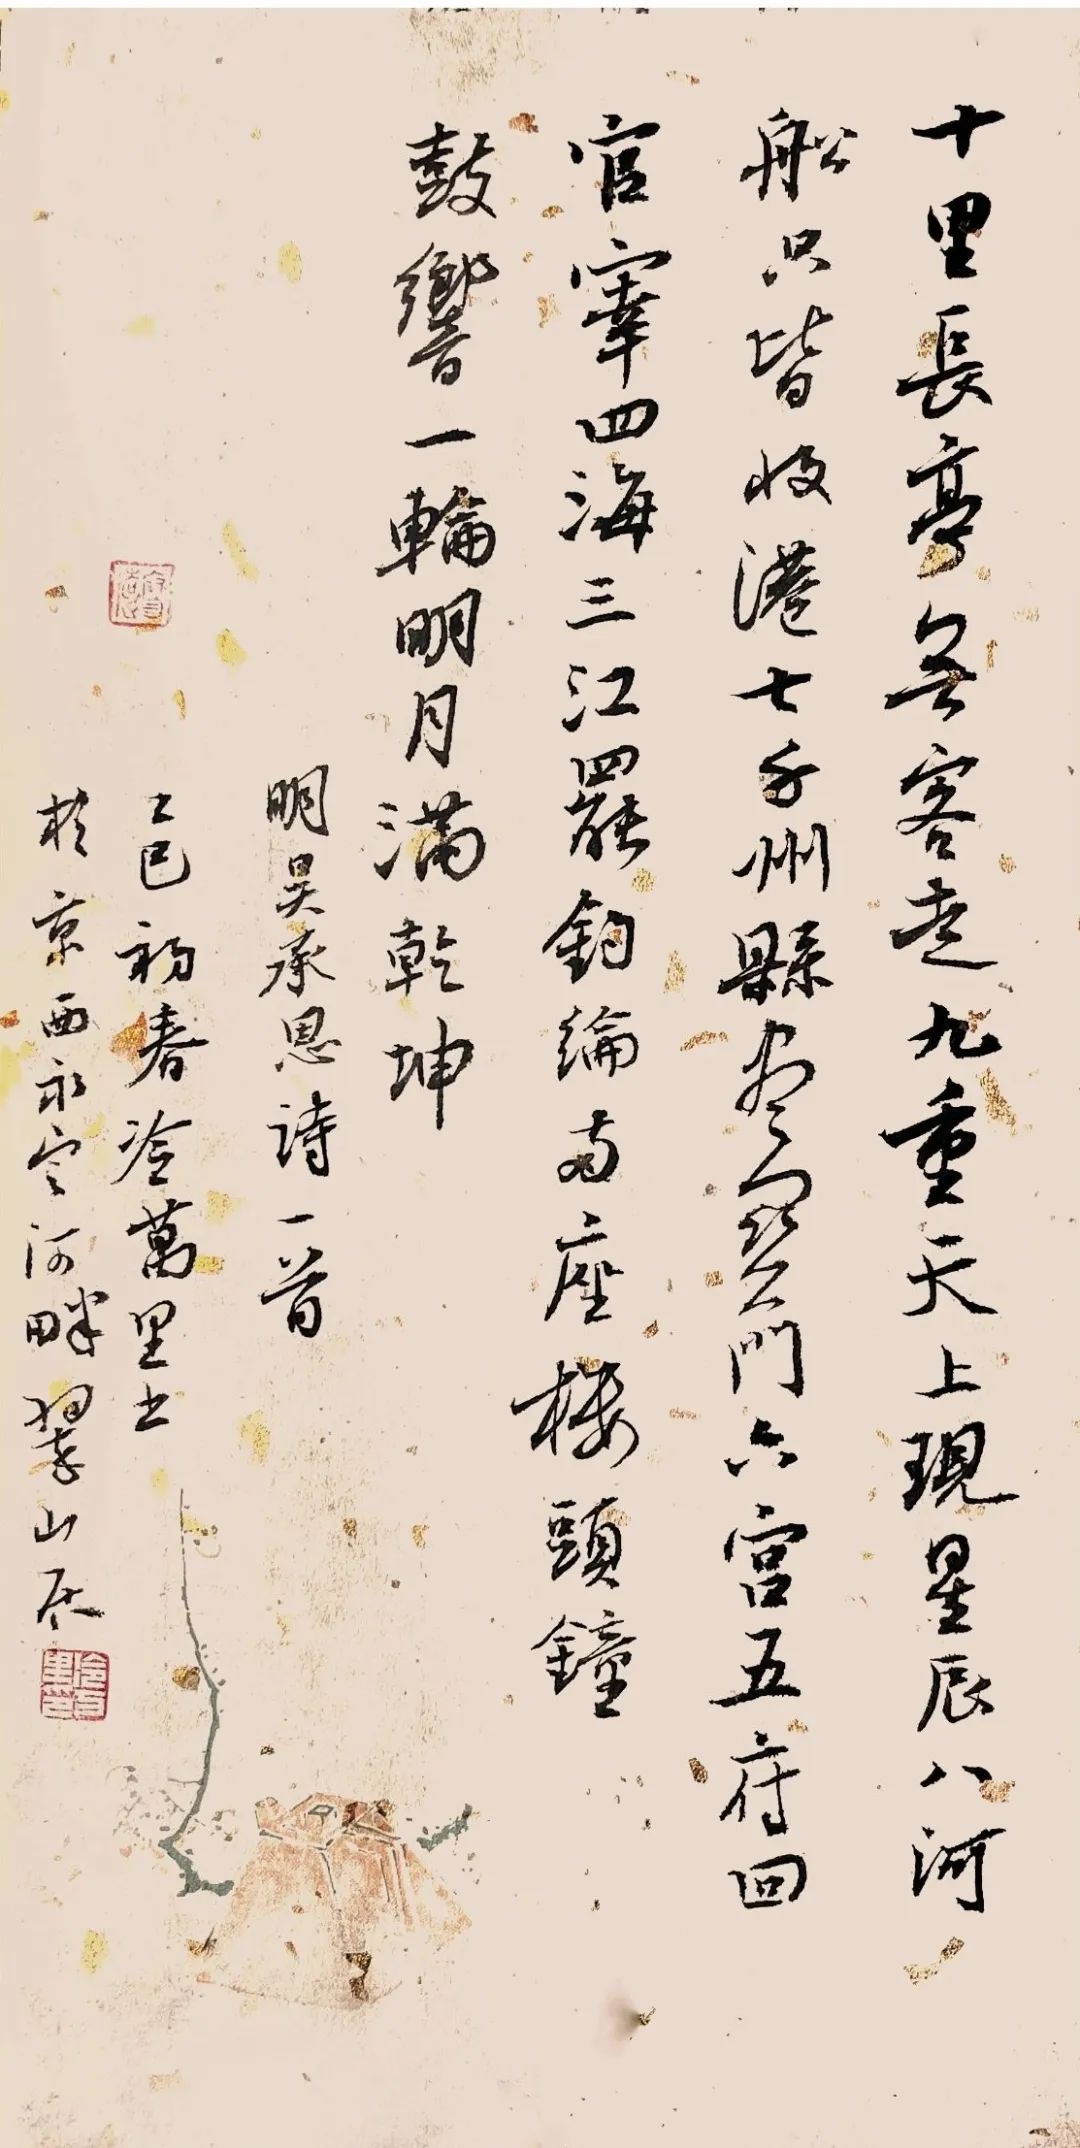 十里長亭無客走九重天上現星辰八河
船只皆收港七千州縣盡關門六宮五府回
官宰四海三江罷釣綸兩座樓頭鐘
鼓響一輪明月滿乾坤
明吴承恩詩一首
乙巳初春冷萬里书
於京西永定河畔翠山居